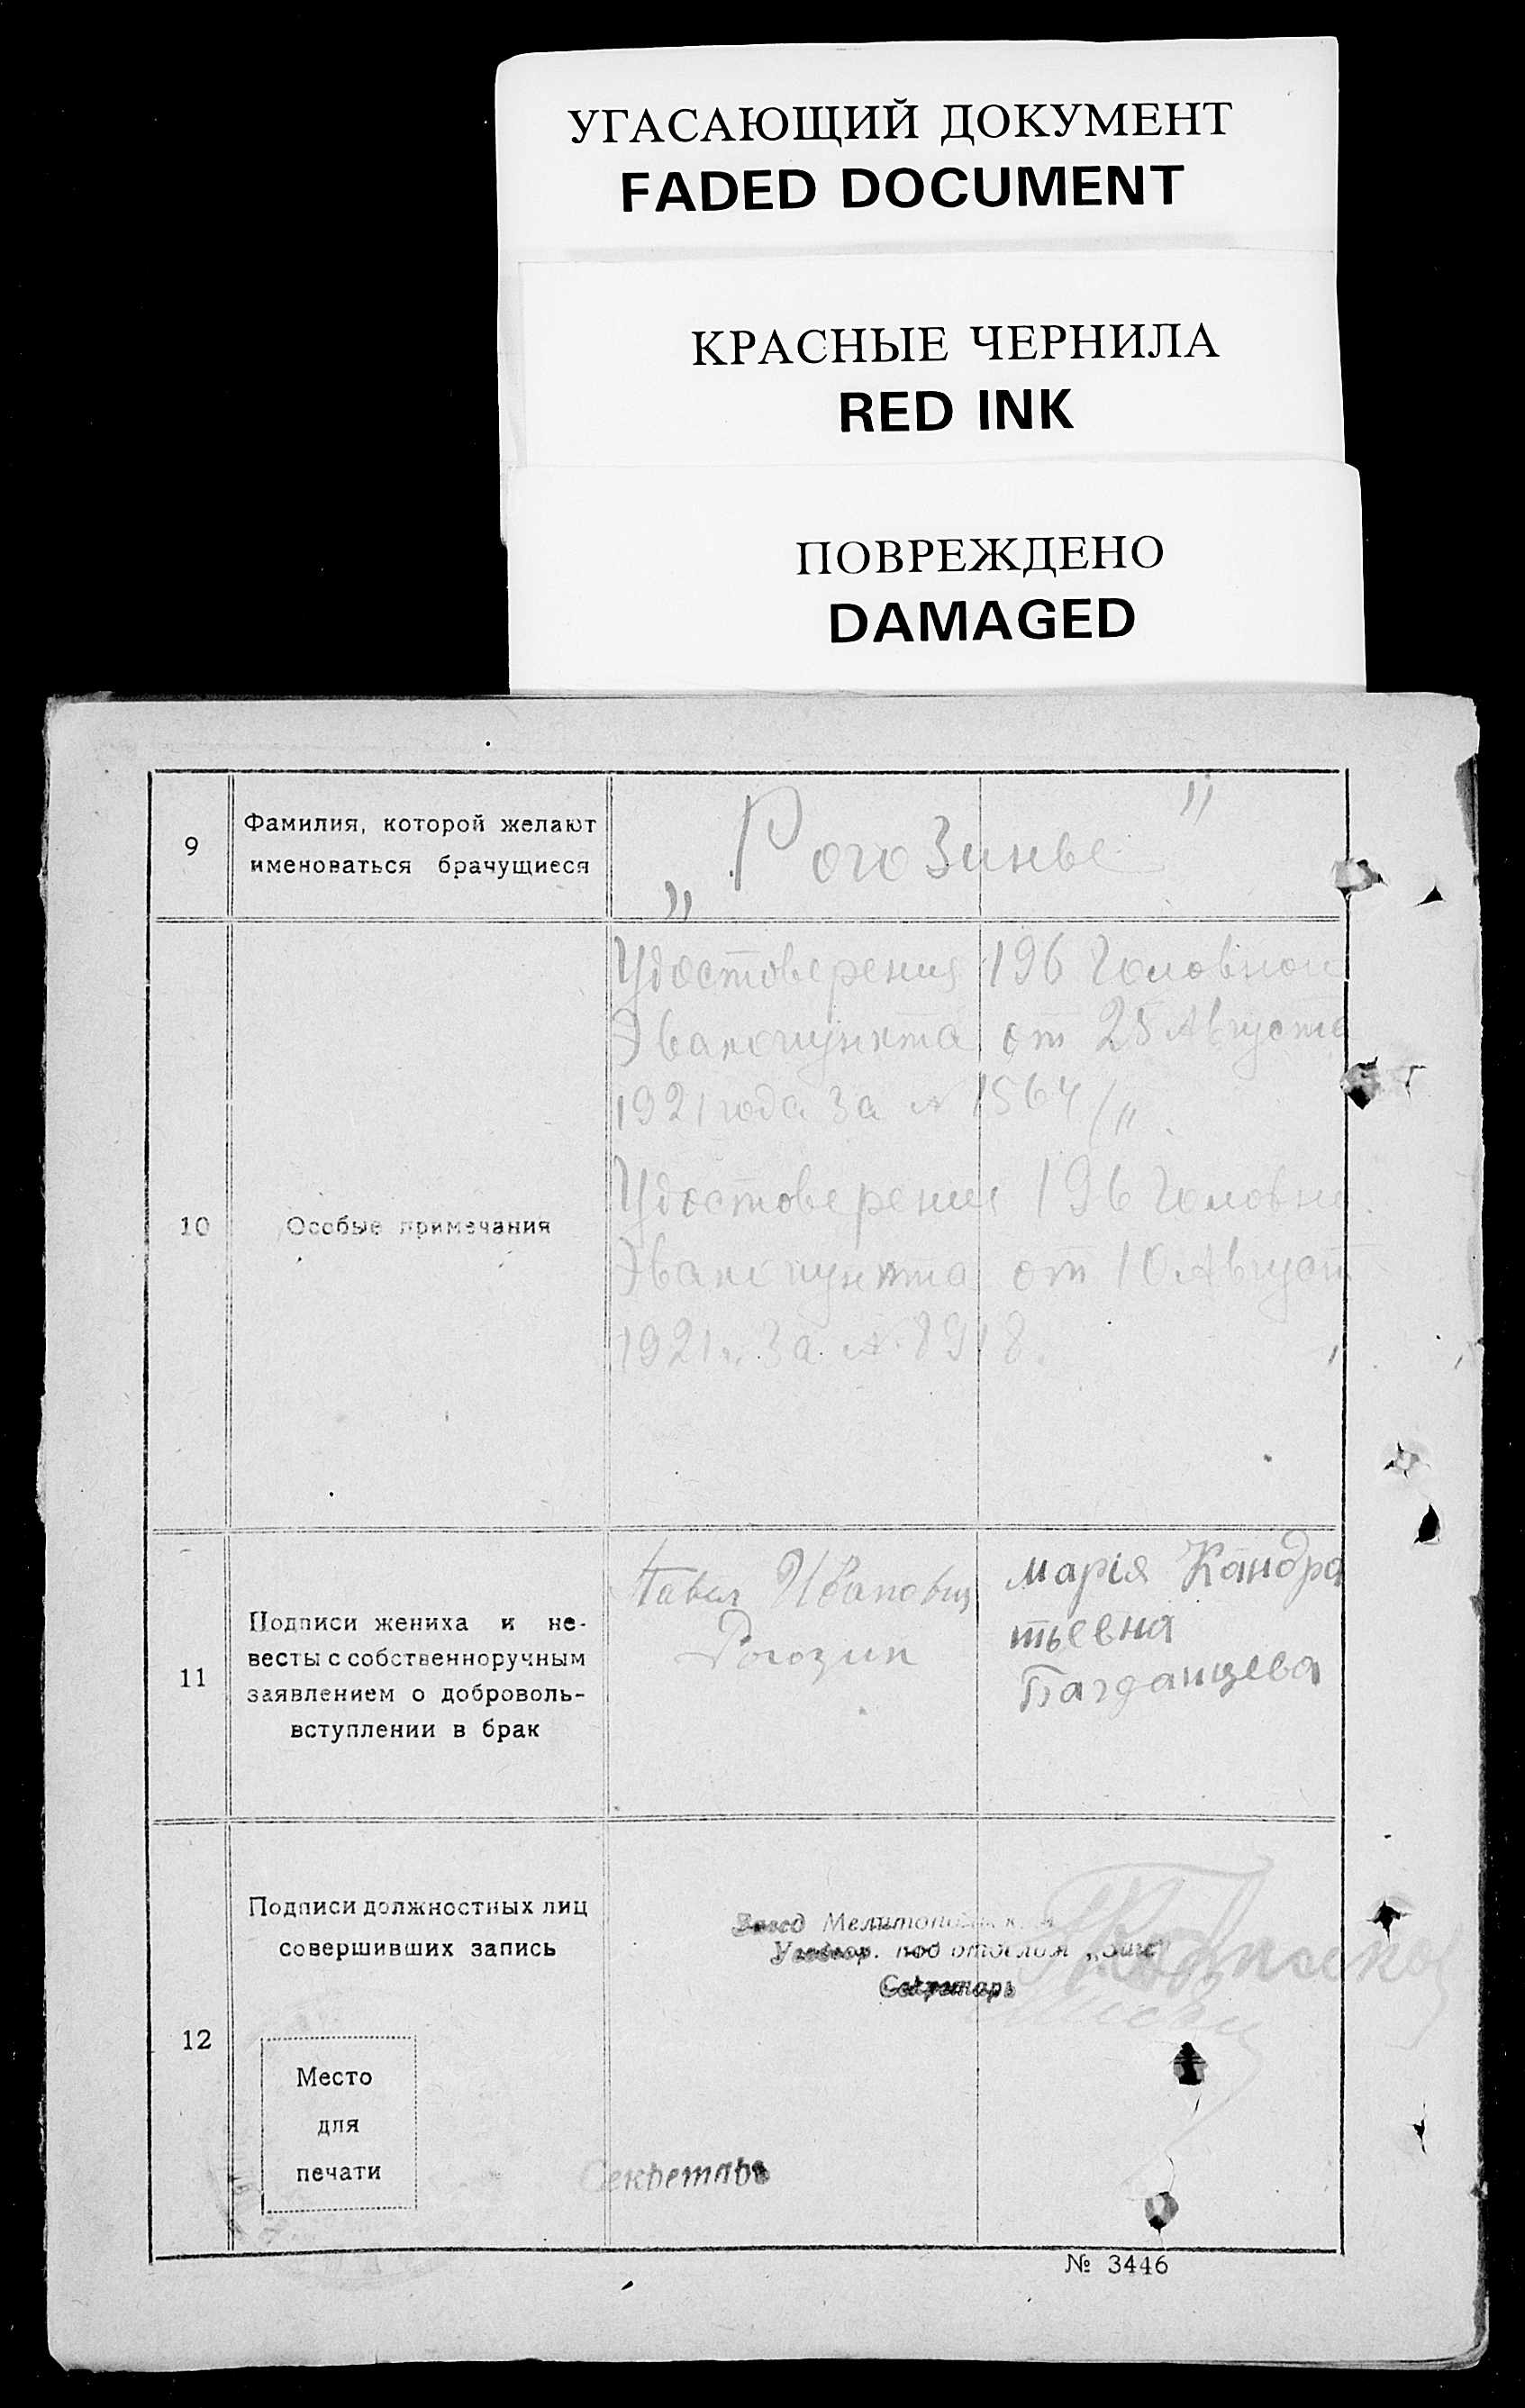 УГАСАЮЩИЙ ДОКУМЕНТ
FADED DOCUMENT
КРАСНЫЕ ЧЕРНИЛА
RED INK
ПОВРЕЖДЕНО
DAMAGED
9
Фамилия, которой желают
именоваться брачущиеся
„Рогозины"
10
Особые примечания
Удостоверения 196 Головной
Эвакопункта от 25 Августа
1921 года за № 1564/„.
Удостоверение 196 Головно.
Эвакопункта от 10 Август
1921 г. за № 8918.
11
Подписи жениха и не-
весты с собственноручным
заявлением о доброволь-
вступлении в брак
Павел Иванович
Рогозин
Марія Кандра
тьевна
Багданцева
12
Подписи должностных лиц
совершивших запись
Завед
под отделом
Секретарь
Место
для
печати
Секретарь
№ 3446